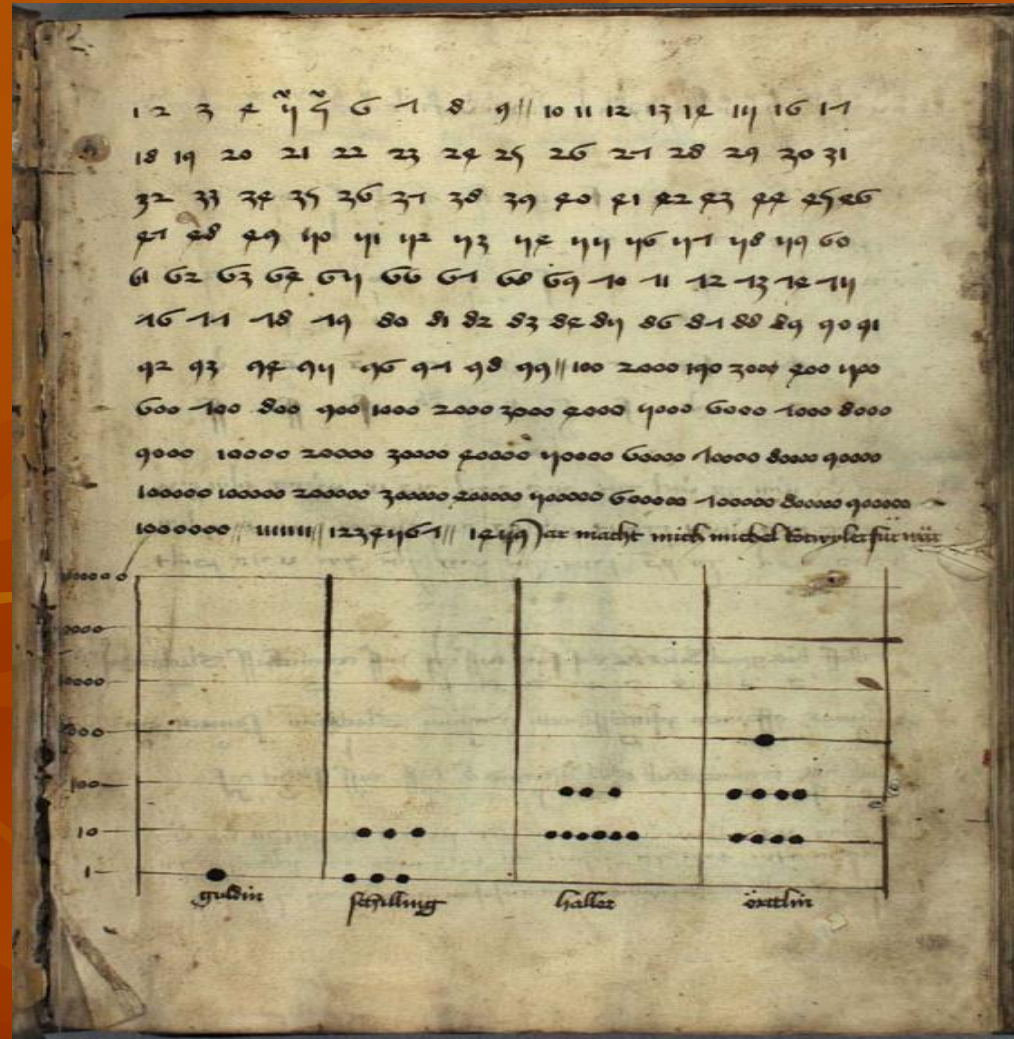 1 2 3 4 5 5 6 7 8 9 // 10 11 12 13 14 15 16 17
18 19 20 21 22 23 24 25 26 27 28 29 30 31
32 33 34 35 36 37 38 39 40 41 42 43 44 45 46
47 48 49 50 51 52 53 54 55 56 57 58 59 60
61 62 63 64 65 66 67 68 69 70 71 72 73 74 75
76 77 78 79 80 81 82 83 84 85 86 87 88 89 90 91
92 93 94 95 96 97 98 99 // 100 2000 190 3000 400 500
600 700 800 900 1000 2000 3000 4000 5000 6000 7000 8000
9000 10000 20000 30000 40000 50000 60000 70000 80000 90000
100000 100000 200000 300000 400000 500000 600000 700000 80000 900000
1000000 // // 1234567 // 1459 Jar macht mich michel
100
10
1
guldin schilling haller örttlin